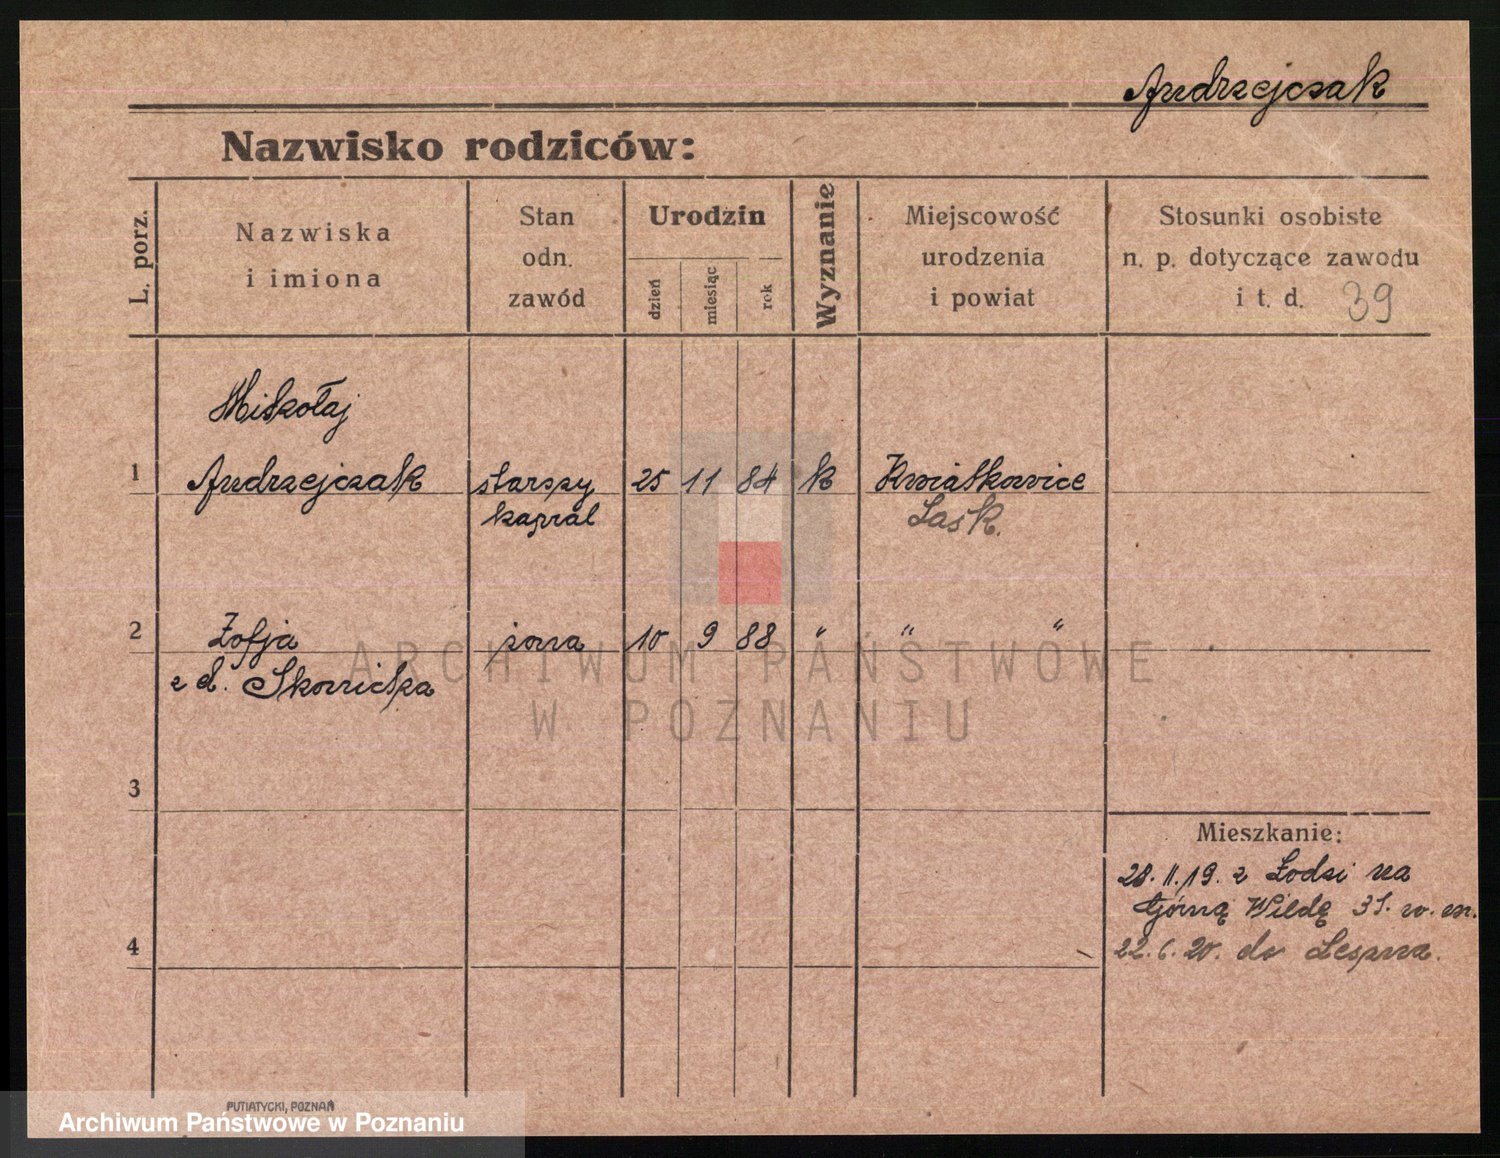 Andrzejczak
Nazwisko rodziców:
L. porz.
Nazwiska
i imiona
Stan
odn.
zawód
Urodzin
dzień
miesiąc
rok
Wyznanie
Miejscowość
urodzenia
i powiat
Stosunki osobiste
n. p. dotyczące zawodu
i t. d. 39
Mikołaj
1 Andrzejczak starszy 25 11 84 k Kwiatkowice
kapral Łask.
2 Zofja żona 10 9 88 " " "
z d. Skowrońska
ARCHIWUM PAŃSTWOWE
W POZNANIU
3
Mieszkanie:
28.11.19. z Łodzi na
Górną Wildę 31. w. m.
4 22.6.20. do Leszna.
PUTIATYCKI, POZNAŃ
Archiwum Państwowe w Poznaniu